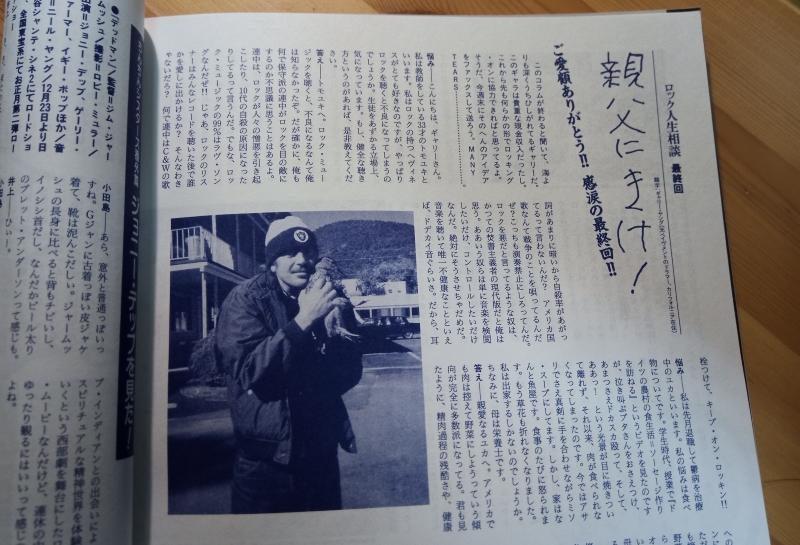 ロック人生相談 最終回
親父にきけ!
ご愛顧ありがとう!! 感涙の最終回!!
このコラムが終わると聞いて、海よ
りも深くうちひしがれてるギャリーだ。
このギャラは貴重な現金収入だったし。
これから先も何らかの形でロッキング
・オンに協力できればと思ってるよ。
そうだ、今週末にその一人のアイデア
をファックスして送ろう。MANY
TEARS
悩み―こんにちは、ギャリーさん。
私は教師をしている23才のトモユキと
いいます。私はロックの持つヘヴィネ
スがとても好きなのですが、やっぱり
ロックを聴くと不良になってしまうの
でしょうか。生徒をあずかる立場上、
気になっています。もし、健全な聴き
方というのがあれば、是非教えてくだ
さい。
答え―トモユキへ。ロック・ミュー
ジックを聴くと、不良になるなんて俺
は知らなかったぞ。だが確かに、俺も
何で保守派の連中がロックを目の敵に
するのか不思議に思うことはあるよ。
連中は、ロックが人々の憎悪を引き起
こしたり、10代の自殺の原因になった
りしてるって言うんだ。でもな、ロッ
ク・ミュージックの99%はラヴ・ソン
グなんだぜ!! じゃあ、ロックのリス
ナーはみんなレコードを聴いた後で誰
かを愛しに出かけるか? そんなわき
ゃないだろう? 何で連中はC&Wの歌
詞があまりに暗いから自殺率があがっ
てるって言わないんだ? アメリカ国
歌なんて戦争のことを唄ってるんだ
ぜ? こっちも演奏禁止にしろってんだ。
ロックを悪だと言ってるような奴は、
かつての焚書主義者の現代版だと俺は
思う。ああいう奴らは単に音楽を検閲
したいだけ、コントロールしたいだけ
なんだ。絶対にそうさせちゃだめだ。
音楽を聴いて唯一不健康なことといえ
ば、ドデカイ音ぐらいさ。だから、耳
栓つけて、キープ・オン・ロッキン!!
悩み―私は先月退職して鬱病を治療
中のユカといいます。私の悩みは食べ
物についてです。学生時代、授業で『ド
イツの農村の食生活=ソーセージ作り
を訪ねる』というビデオを見たのです
が、泣き叫ぶブタさんをおさえつけ、
あまつさえドカスカ殴って、そして、
ああっ! という光景が目に焼きつい
て離れず、それ以来、肉が食べられな
くなってしまったのです。今ではアサ
リでさえ真剣に手を合わせながらミソ
・スープにしてます。しかし、家はな
んと魚屋です。食事のたびに怒られま
す。もう草花も折れなくなりました。
私は出家するしかないのでしょうか。
ちなみに、母は栄養士です。
答え―親愛なるユカへ。アメリカで
も肉は控えて野菜にしようっていう傾
向が完全に多数派になってる。君も見
たように、精肉過程の残酷さや、健康
ジョニー・デップを見た!
●『デッドマン』/監督=ジム・ジャー
ムッシュ/撮影=ロビー・ミュラー/
出演=ジョニー・デップ、ゲーリー・
ファーマー、イギー・ポップほか/音
楽=ニール・ヤング/12月23日より日
比谷シャンテ・シネ2にてロードショ
ー、全国東宝系にてお正月第二弾ロー
小田島― あら、意外と普通っぽいっ
すね。Gジャンに古着っぽい皮ジャケ
着て、靴は泥んこだしい。ジャームッ
シュの長身に比べると背もチビいし、
イノシシ首だし、なんだかビール太り
のブレット・アンダーソンって感じも。
井上― ひぃー。
ブ・インディアンとの出会いによ
スピリチュアルな精神世界を体験
いくという西部劇を舞台にした
・ムービーなんだけど、連休の
ゆったり観るにはいいって感じ
よね。